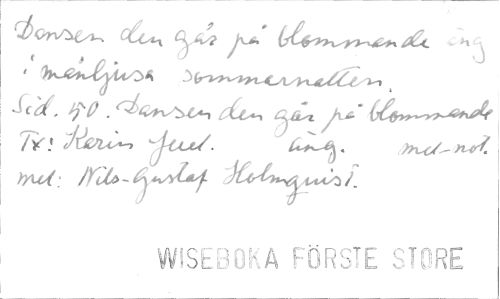 Dansen den går på blommande äng
i månljusa sommarnatten.
Sid. 50. Dansen den går på blommande
Tx: Karin Juel. äng. mel-not.
mel: Nils-Gustaf Holmquist.
WISEBOKA FÖRSTE STORE